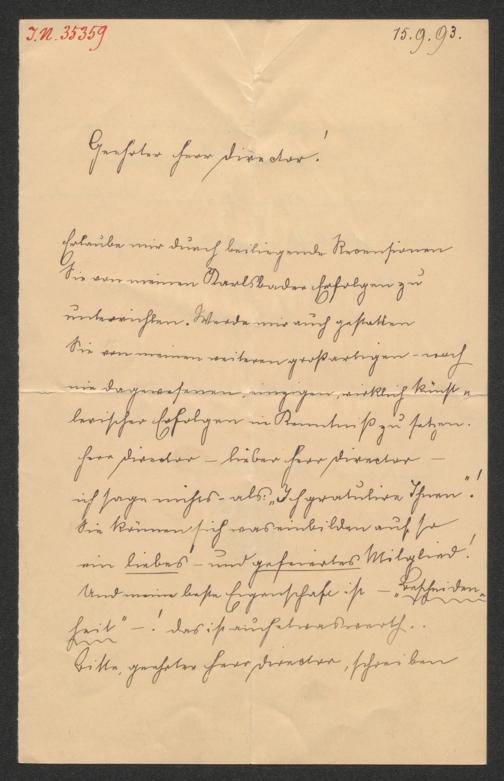 I.N. 35359
15.9.93.
Geehrter Herr Director!
Erlaube mir durch beiliegende Recensionen
Sie von meinen Karlsbader Erfolgen zu
unterrichten. Werde mir auch gestatten
Sie von meinen weiteren großartigen - noch
nie dagewesenen, einzigen, wirklich künst-
lerischer Erfolgen in Kenntniß zu setzen.
Herr Director - lieber Herr Director -
ich sage nichts - als: „Ich gratulire Ihnen"!
Sie können sich was einbilden auf so
ein liebes - und gefeiertes Mitglied!
Und meine beste Eigenschaft ist - „Bescheiden-
heit" - ! Das ist auch etwas werth..
Bitte, geehrter Herr Director, schreiben